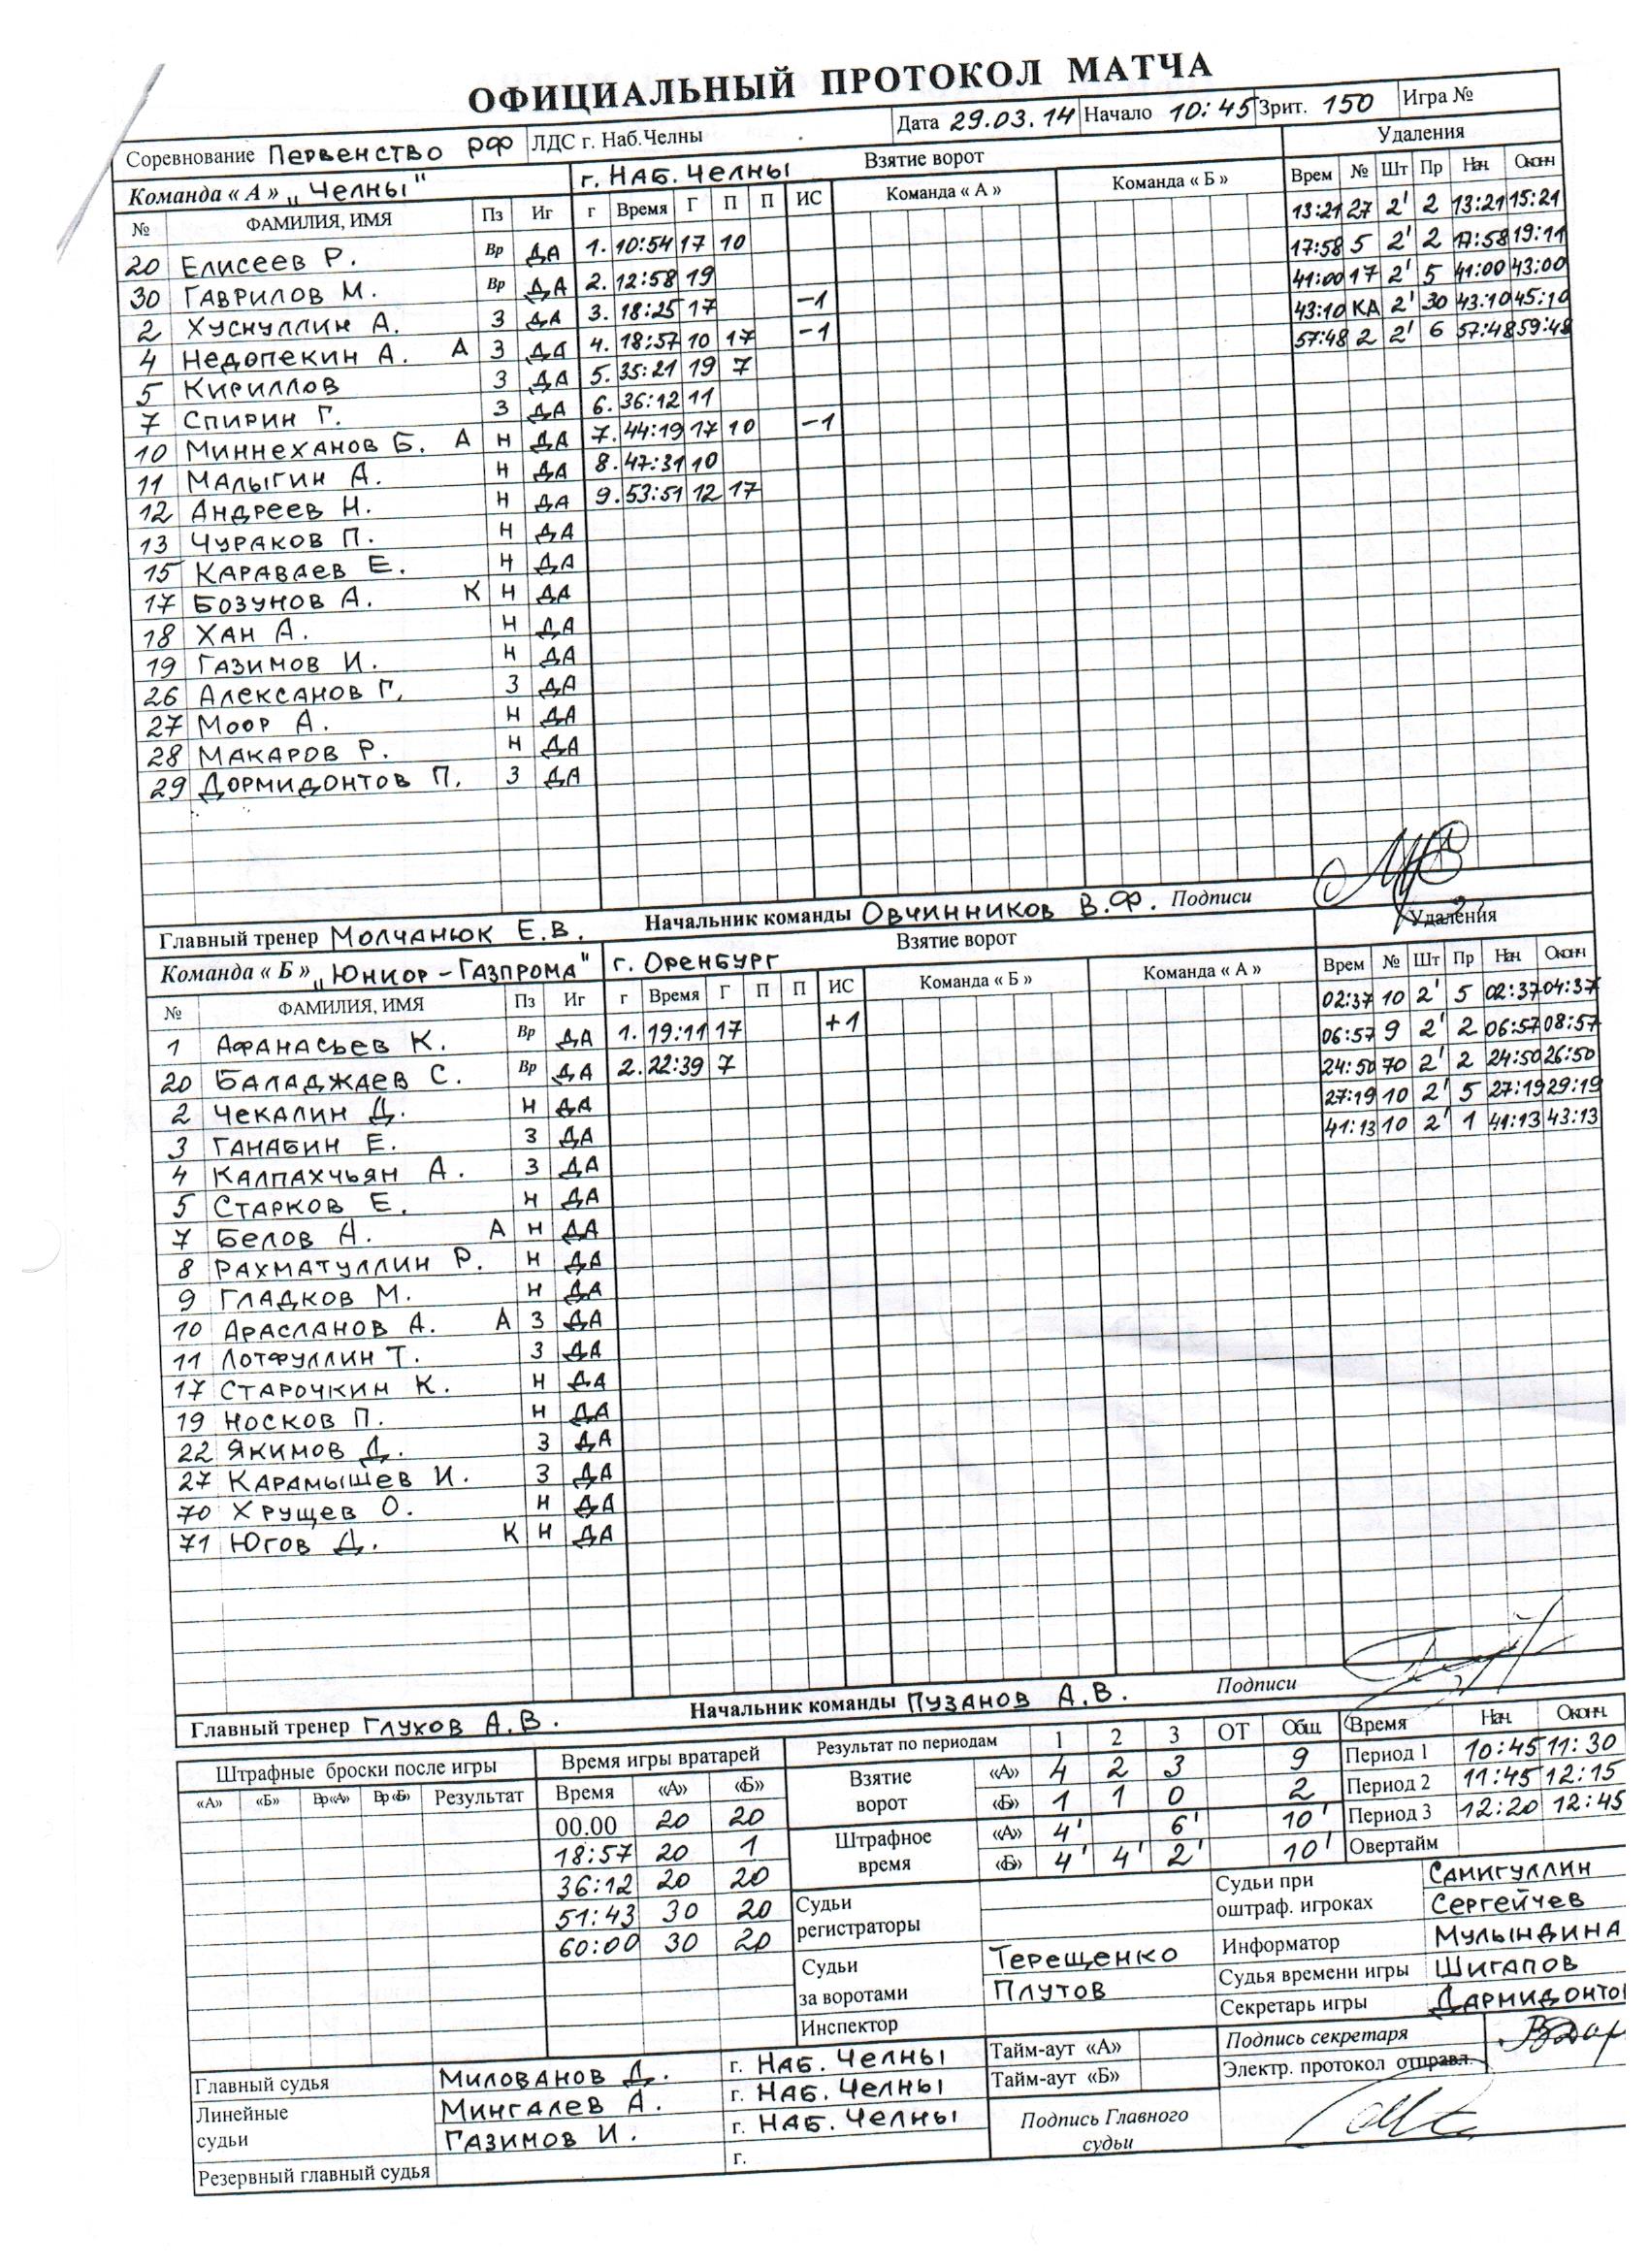 ОФИЦИАЛЬНЫЙ ПРОТОКОЛ МАТЧА
Соревнование Первенство РФ ЛДС г. Наб.Челны Дата 29.03.14 Начало 10:45 Зрит. 150 Игра №
Команда « А » „Челны" г. Наб. Челны Взятие ворот Удаления
№ ФАМИЛИЯ, ИМЯ Пз Иг г Время Г П П ИС Команда « А » Команда « Б » Врем № Шт Пр Нач. Оконч
20 Елисеев Р. Вр ДА 1. 10:54 17 10 13:21 27 2' 2 13:21 15:21
30 Гаврилов М. Вр ДА 2. 12:58 19 17:58 5 2' 2 17:58 19:11
2 Хуснуллин А. З ДА 3. 18:25 17 -1 41:00 17 2' 5 41:00 43:00
4 Недопекин А. А З ДА 4. 18:57 10 17 -1 43:10 КА 2' 30 43:10 45:10
5 Кириллов З ДА 5. 35:21 19 7 57:48 2 2' 6 57:48 59:48
7 Спирин Г. З ДА 6. 36:12 11
10 Миннеханов Б. А Н ДА 7. 44:19 17 10 -1
11 Малыгин А. Н ДА 8. 47:31 10
12 Андреев Н. Н ДА 9. 53:51 12 17
13 Чураков П. Н ДА
15 Караваев Е. Н ДА
17 Бозунов А. К Н ДА
18 Хан А. Н ДА
19 Газимов И. Н ДА
26 Алексанов Г. З ДА
27 Моор А. Н ДА
28 Макаров Р. Н ДА
29 Дормидонтов П. З ДА
Главный тренер Молчанюк Е.В. Начальник команды Овчинников В.Ф. Подписи
Команда « Б » „Юниор-Газпрома" г. Оренбург Взятие ворот Удаления
№ ФАМИЛИЯ, ИМЯ Пз Иг г Время Г П П ИС Команда « Б » Команда « А » Врем № Шт Пр Нач Оконч
1 Афанасьев К. Вр ДА 1. 19:11 17 +1 02:37 10 2' 5 02:37 04:37
20 Баладжаев С. Вр ДА 2. 22:39 7 06:57 9 2' 2 06:57 08:57
2 Чекалин Д. Н ДА 24:50 70 2' 2 24:50 26:50
3 Ганабин Е. З ДА 27:19 10 2' 5 27:19 29:19
4 Калпахчьян А. З ДА 41:13 10 2' 1 41:13 43:13
5 Старков Е. Н ДА
7 Белов А. А Н ДА
8 Рахматуллин Р. Н ДА
9 Гладков М. Н ДА
10 Арасланов А. А З ДА
11 Лотфуллин Т. З ДА
17 Старочкин К. Н ДА
19 Носков П. Н ДА
22 Якимов Д. З ДА
27 Карамышев И. З ДА
70 Хрущев О. Н ДА
71 Югов Д. К Н ДА
Главный тренер Глухов А.В. Начальник команды Пузанов А.В. Подписи
Штрафные броски после игры Время игры вратарей Результат по периодам 1 2 3 ОТ Общ Время Нач. Оконч.
«А» «Б» Вр«А» Вр«Б» Результат Время «А» «Б» Взятие ворот «А» 4 2 3 9 Период 1 10:45 11:30
00.00 20 20 «Б» 1 1 0 2 Период 2 11:45 12:15
18:57 20 1 Штрафное время «А» 4' 6' 10' Период 3 12:20 12:45
36:12 20 20 «Б» 4' 4' 2' 10' Овертайм
51:43 30 20 Судьи регистраторы Судьи при оштраф. игроках Самигуллин
60:00 30 20 Сергейчев
Информатор Мулындина
Судьи за воротами Терещенко Судья времени игры Шигапов
Плутов Секретарь игры Дармидонтов
Инспектор Подпись секретаря
Тайм-аут «А» Электр. протокол отправл.
Тайм-аут «Б»
Главный судья Милованов Д. г. Наб. Челны
Линейные судьи Мингалев А. г. Наб. Челны
Газимов И. г. Наб. Челны Подпись Главного судьи
Резервный главный судья г.